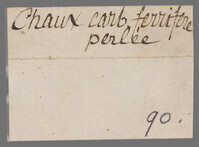 Chaux carb. ferrifère
perlée
90.